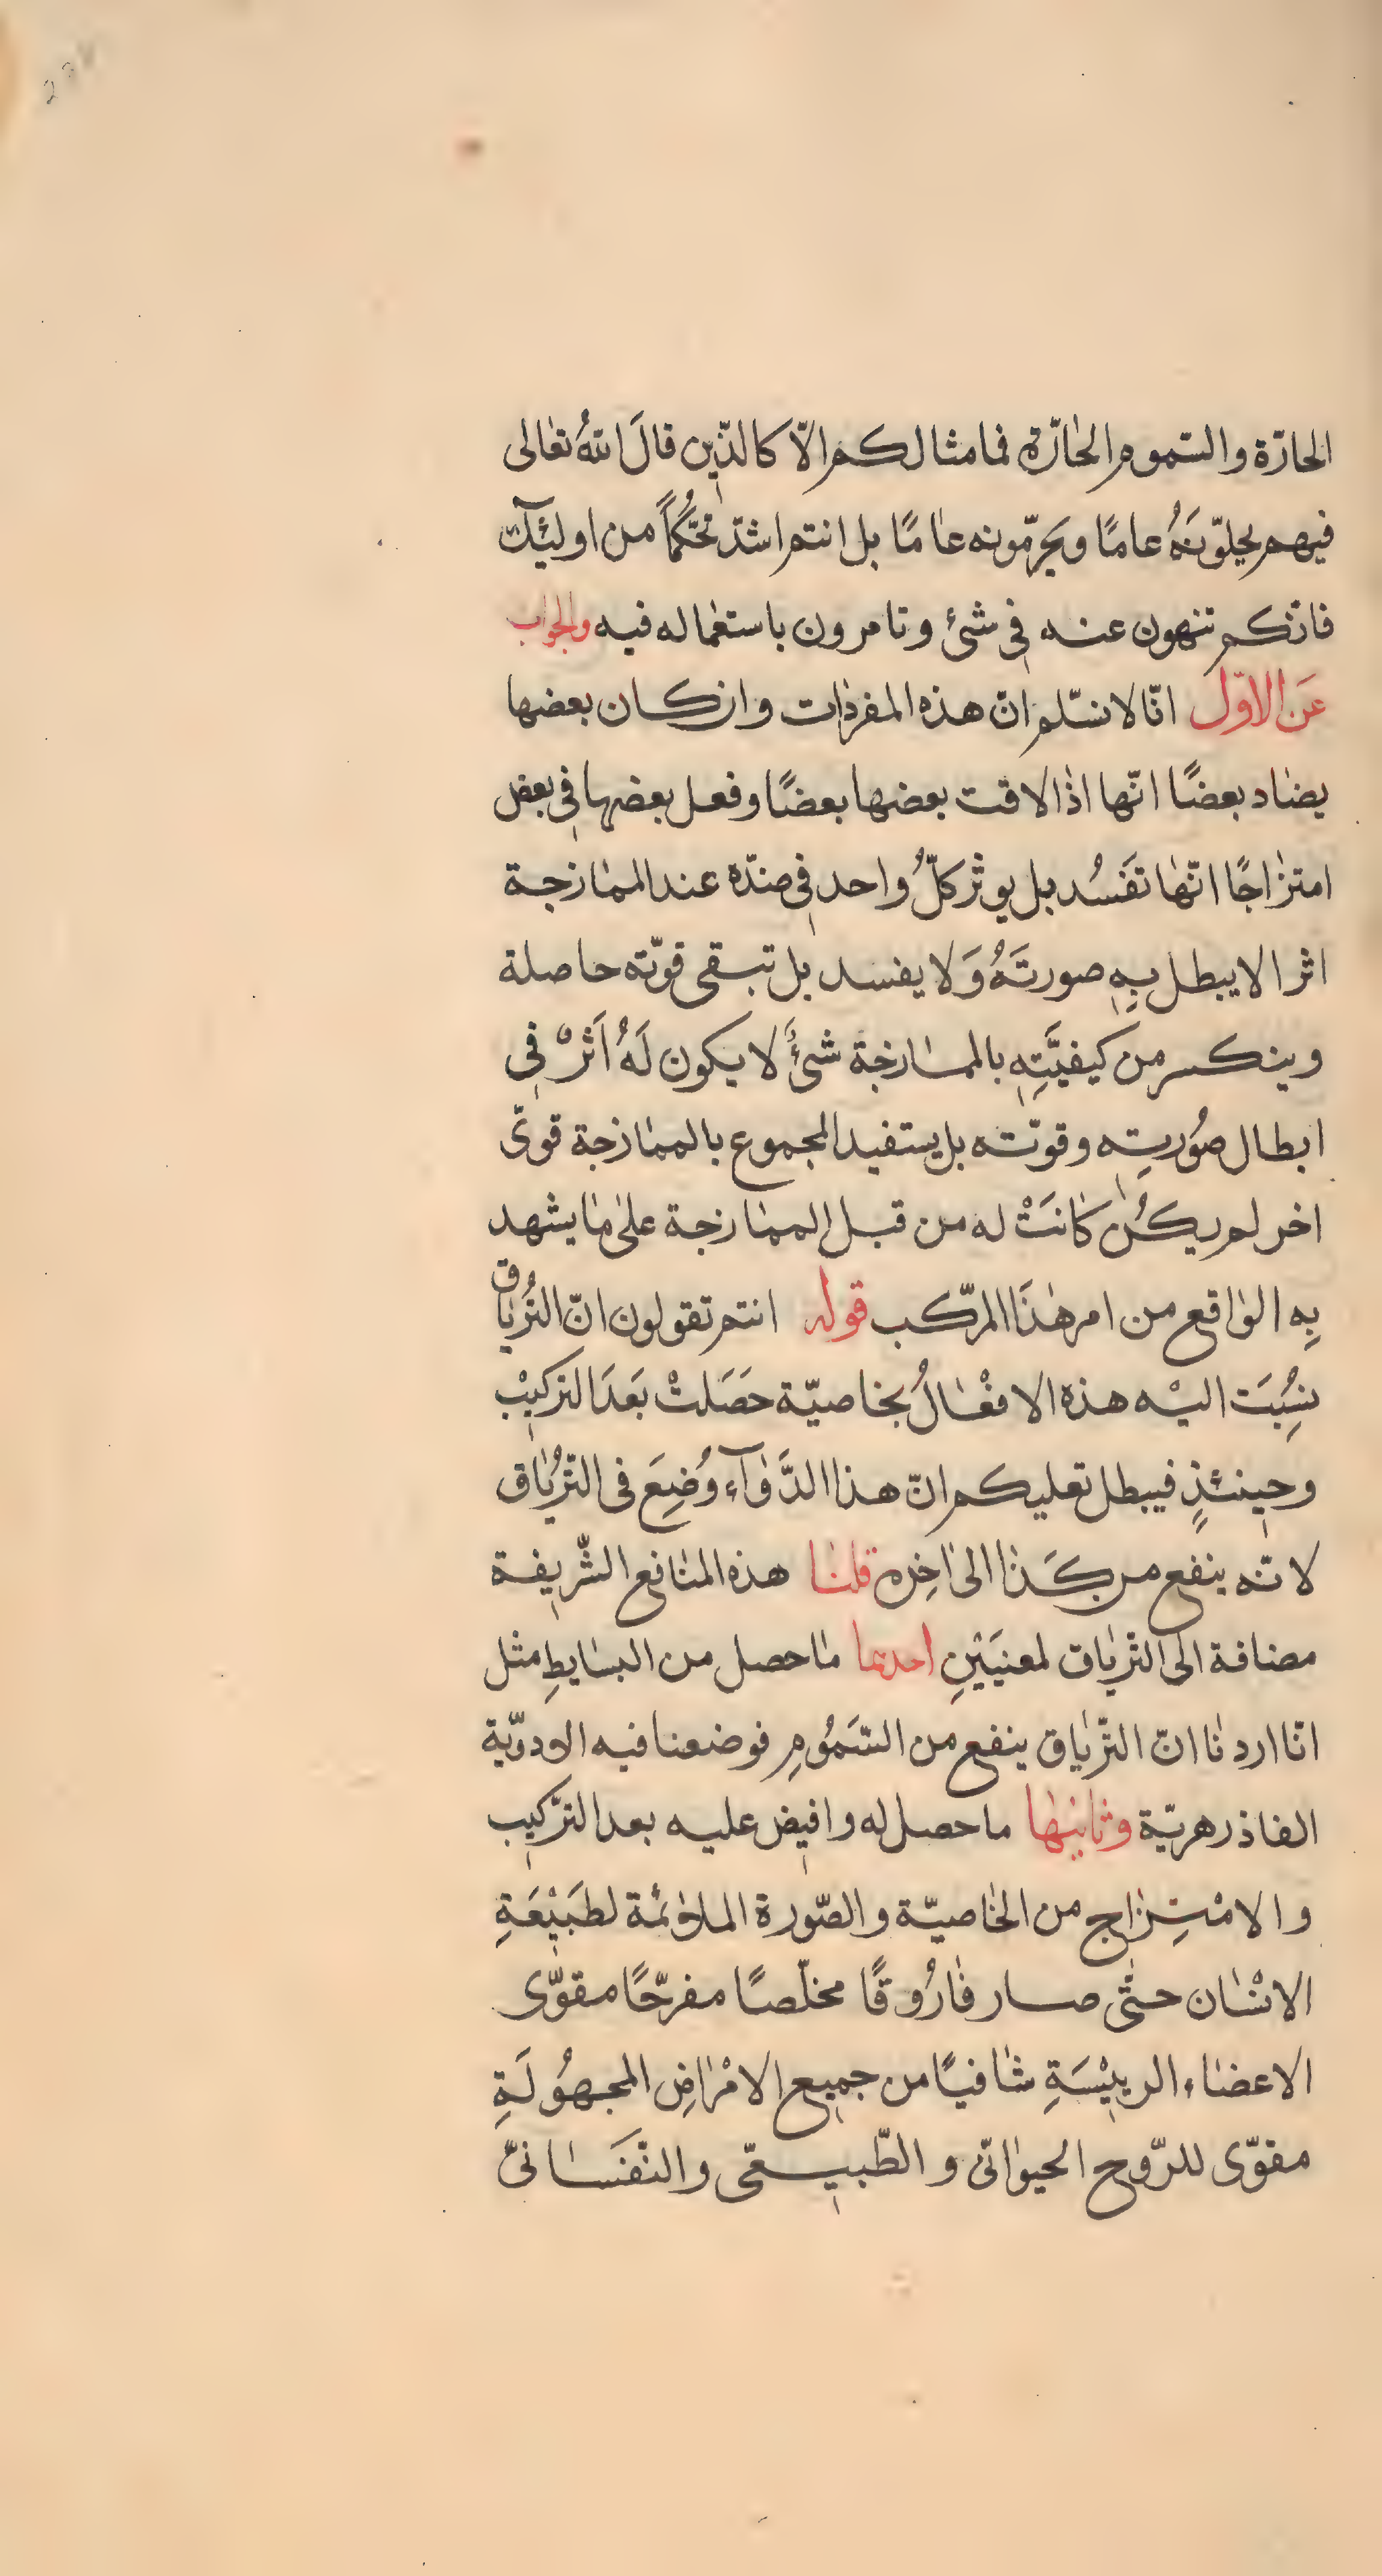 الحارّة والسّموم الحارّة فما مثالكم الّا كالذّين قالَ اللهُ تعالى
فيهم يحلّونَهُ عامًا ويَحرّمونه عامًا بل انتم اشدّ تحكُّمًا من اولئِٓك
فانّكم تنهون عنه في شئ وتامرون باستعماله فيه والجواب
عَن الاوّل انّا لا نسّلم انّ هذه المفردات وان كان بعضها
يضاد بعضًا انّها اذا لاقت بعضها بعضًا وفعل بعضها في بعض
امتزاجًا انّها تَفسُد بل يوثر كلُّ واحد في ضدّه عند الممازجة
اثرا لا يبطل بِه صورتَهُ وَلا يفسد بل تبقى قوّته حاصلة
وينكسر من كيفيَّتِهِ بالممازجة شئٌ لا يكون لَهُ اَثرٌ في
ابطال صُورتِه وقوّته بل يستفيد المجموع بالممازجة قوىً
اخر لم يكُن كانَتْ له من قبل الممازجة على ما يشهد
بِه الواقع من امر هٰذَا المرّكب قوله انتم تقولون انّ التُرياق
نسِبَت اليْه هذه الافْعالُ بخاصيّة حَصَلتْ بَعدَ التركيْب
وحينئذٍ فيبطل تعليكم انّ هذا الدَّوآء وُضِعَ فى التّرُياق
لانّه ينفع من كَذا الى اخِره قلنا هذه المنافع الشّريفة
مضافة الى التّرياق لمعنيَيْنِ احدهما ما حصل من البسايطِ مثل
انّا اردنا انّ التّرياق ينفع من السّمُومِ فوضعنا فيه الادوّية
الفاذرهريّة وثانيها ما حصل له وافيض عليه بعد التّركيب
والامْتِزاج من الخاصيّة والصّورة الملائمة لطَبيْعَةِ
الانْسان حتّى صار فارُوقًا مخلّصًا مفرحّا مقوّى
الاعضاء الرييْسَةِ شافيًا من جميع الامْراضِ المجهُولَةِ
مقوّى للرّوح الحيوانّى والطّبيعّى والنّفَسانّى